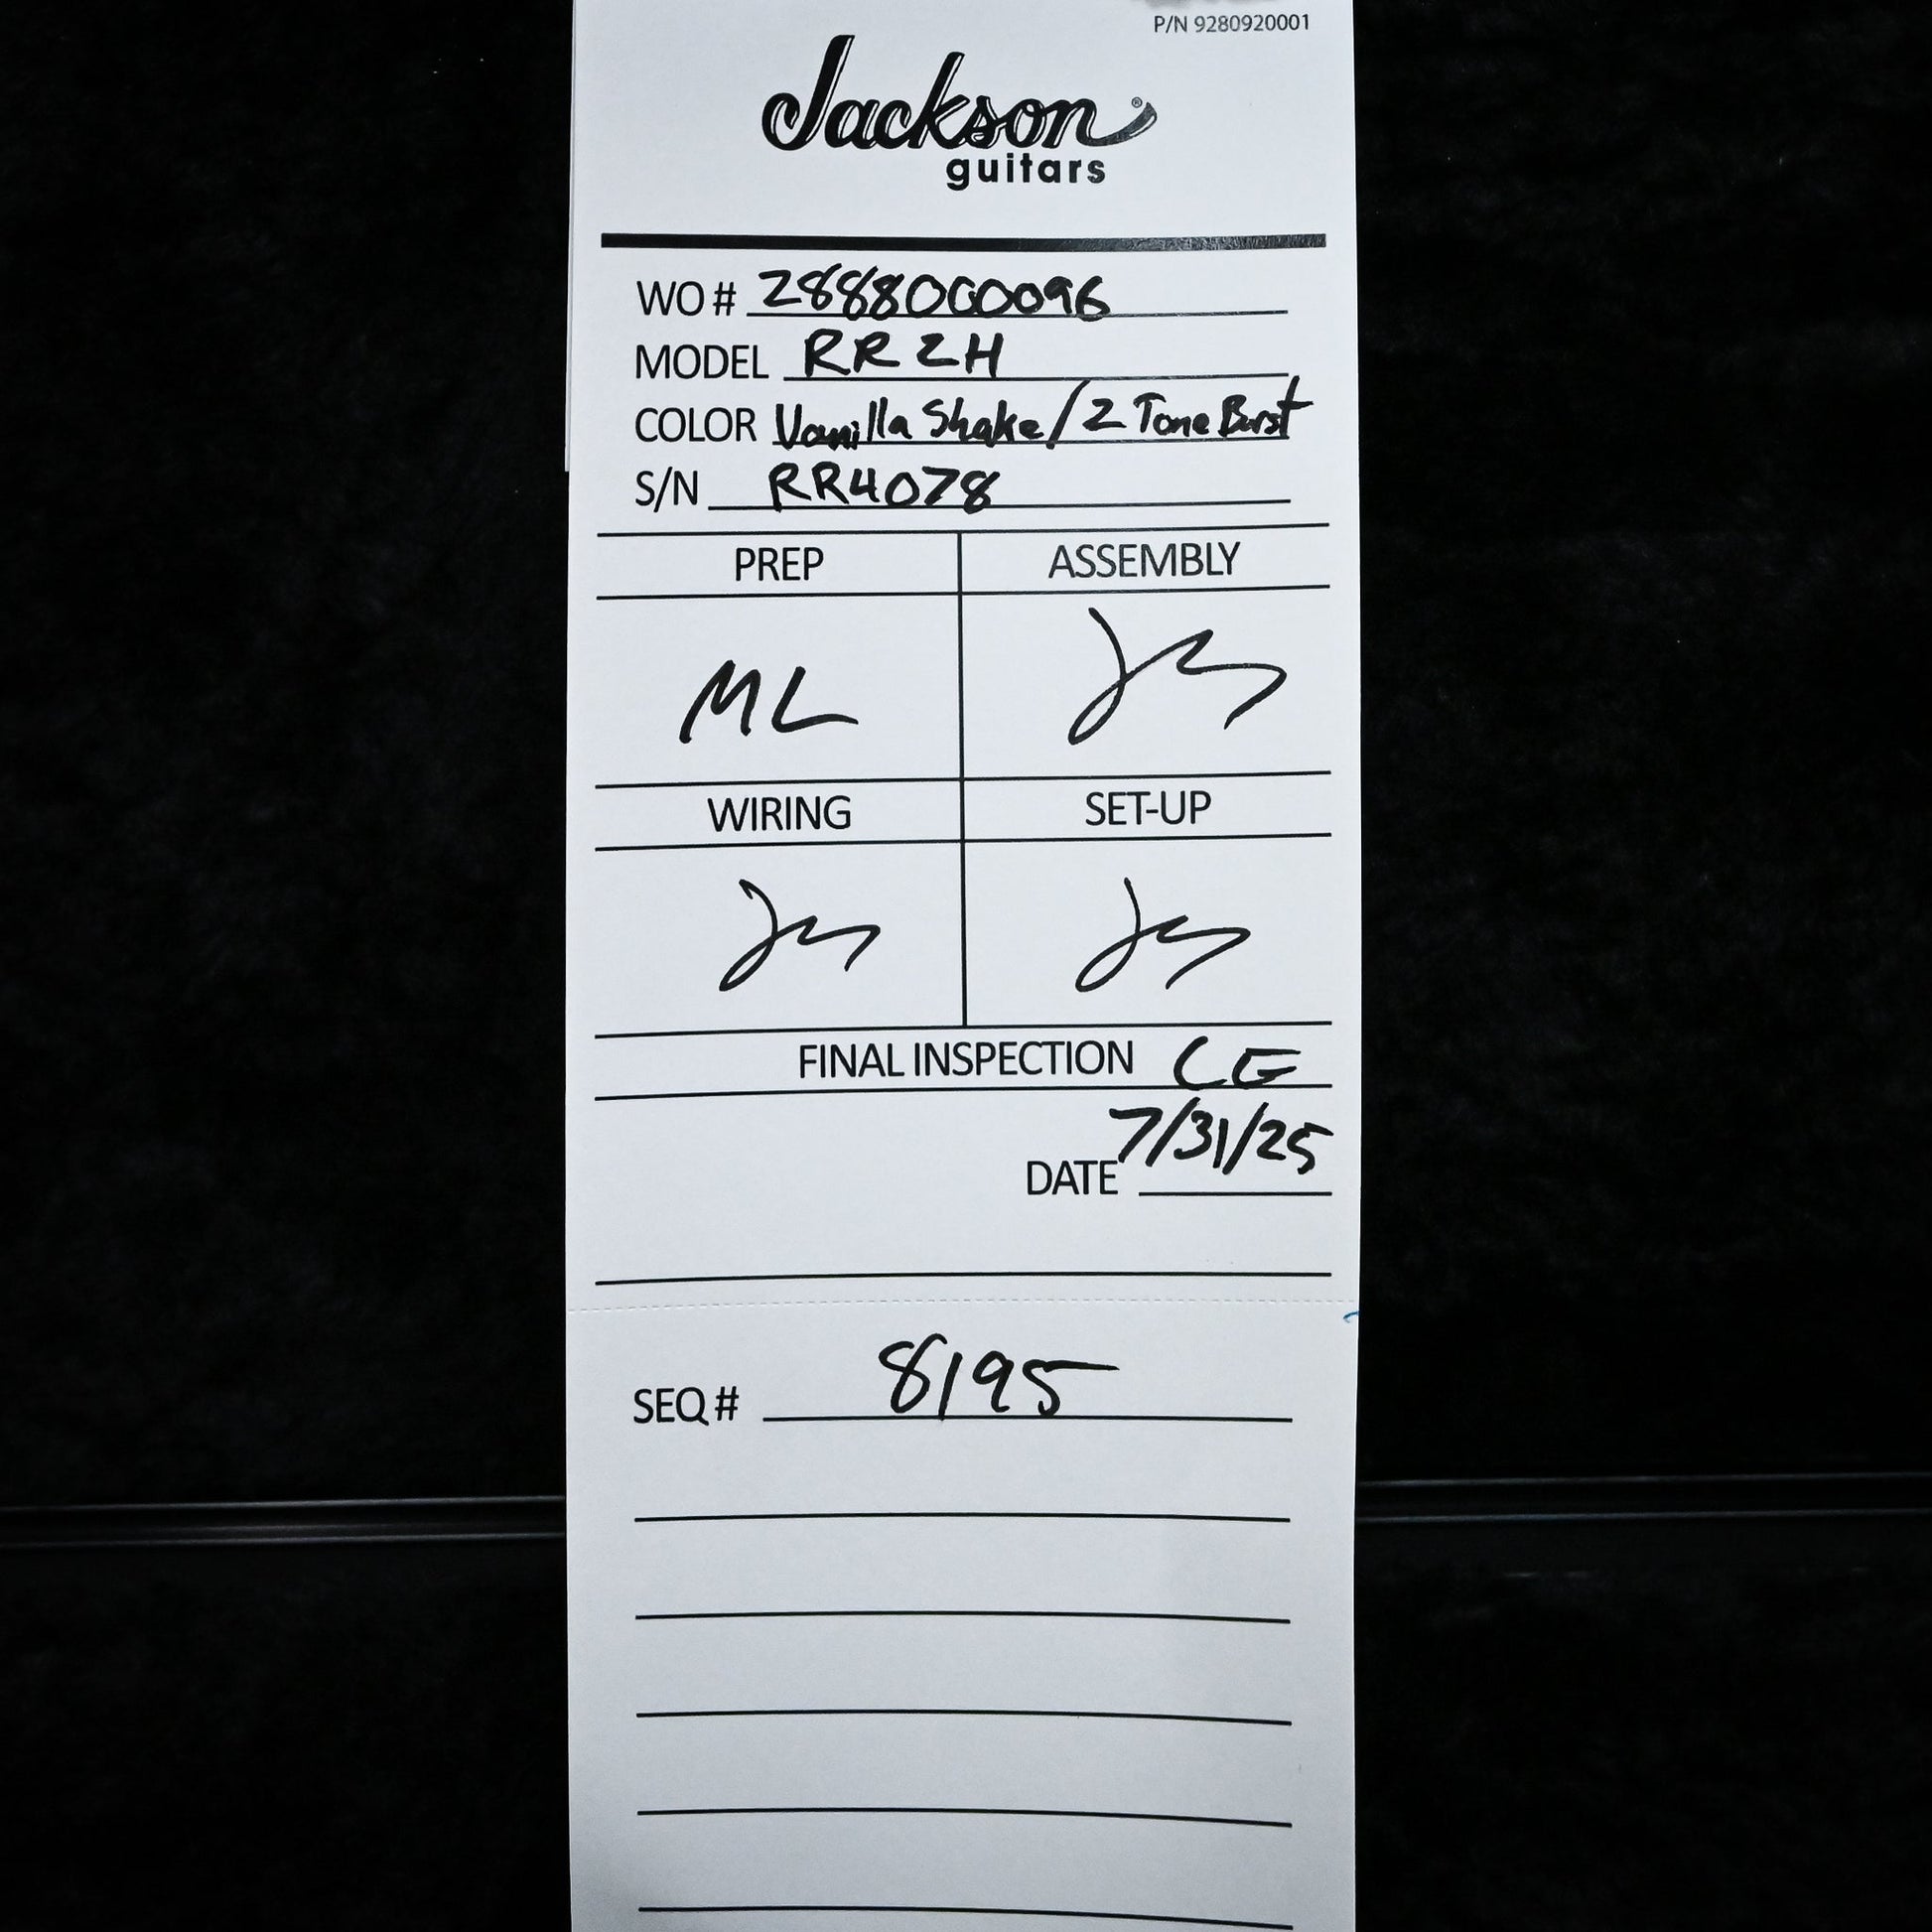 P/N 9280920001
Jackson®
guitars
WO # 2888000096
MODEL RR2H
COLOR Vanilla Shake/2 Tone Burst
S/N RR4078
PREP ASSEMBLY
ML
WIRING SET-UP
FINAL INSPECTION CE
7/31/25
DATE
SEQ # 8195